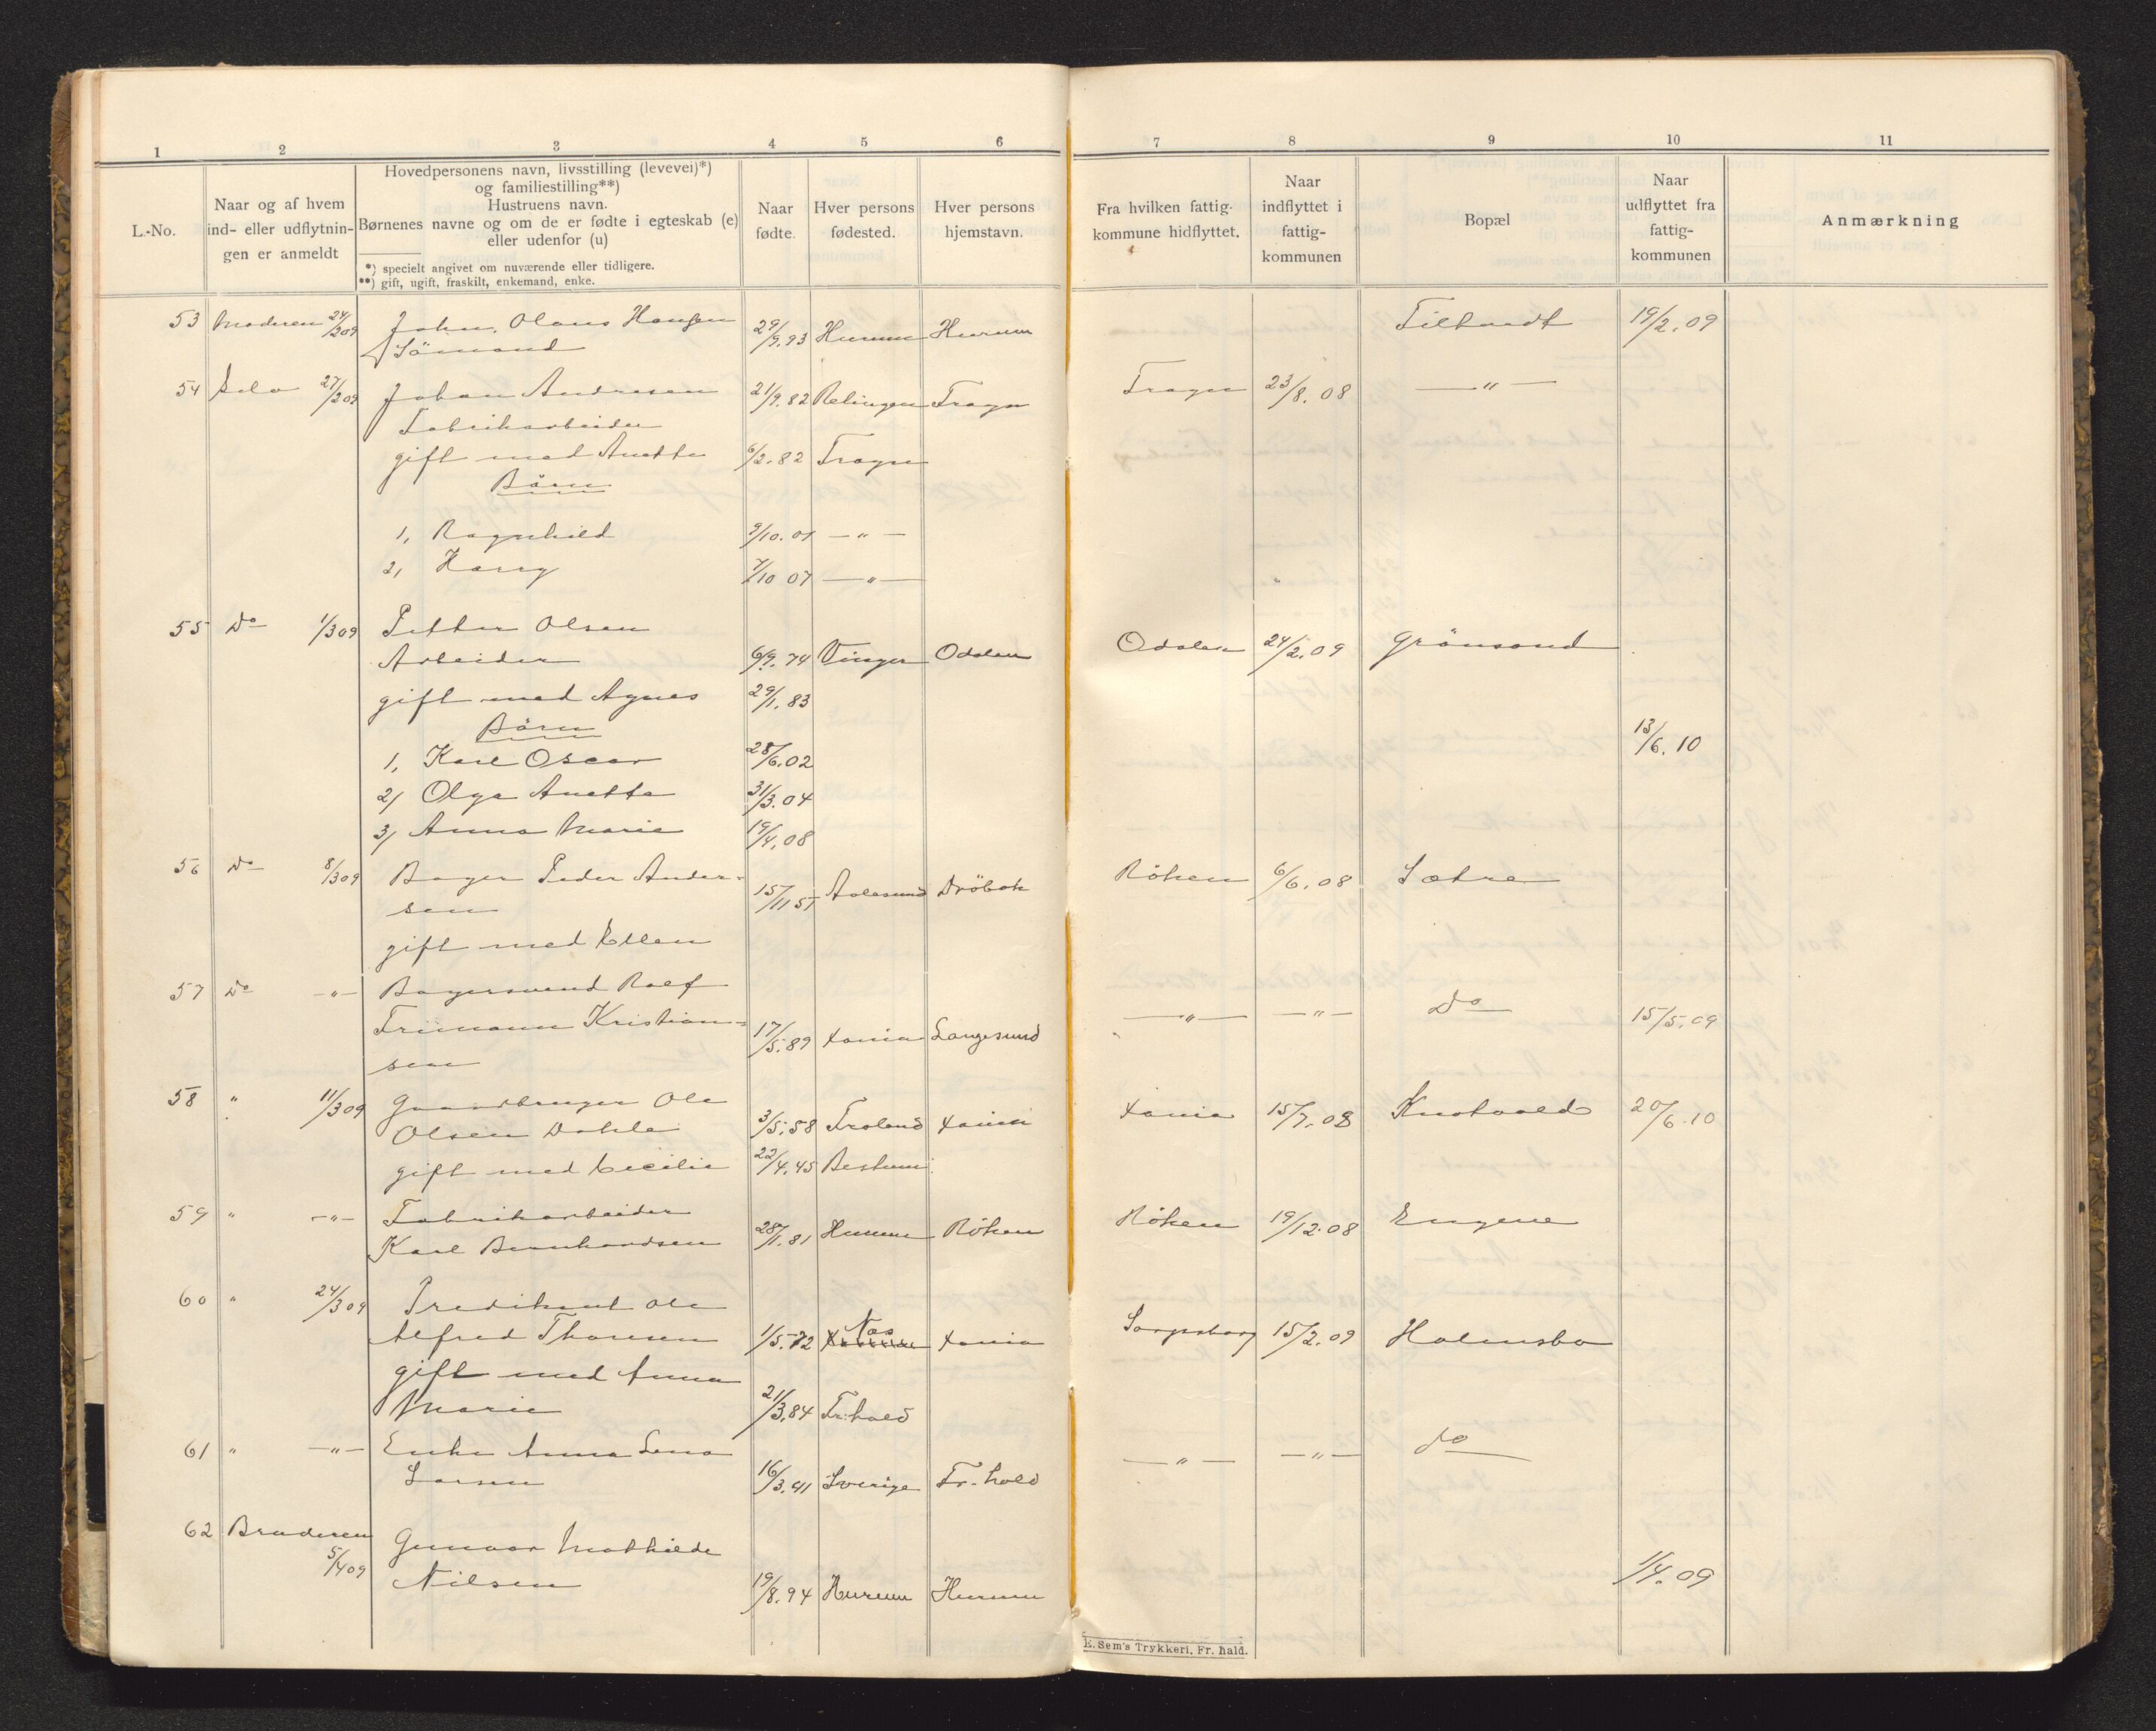 1 2 3 4 5 6 7 8 9 10 11
L.-No.
Naar og af hvem
ind- eller udflytnin-
gen er anmeldt
Hovedpersonens navn, livsstilling (levevei)*)
og familiestilling**)
Hustruens navn.
Børnenes navne og om de er fødte i egteskab (e)
eller udenfor (u)
*) specielt angivet om nuværende eller tidligere.
**) gift, ugift, fraskilt, enkemand, enke.
Naar
fødte.
Hver persons
fødested.
Hver persons
hjemstavn.
Fra hvilken fattig-
kommune hidflyttet.
Naar
indflyttet i
fattig-
kommunen
Bopæl
Naar
udflyttet fra
fattig-
kommunen
Anmærkning
53 Moderen 24/2 09 John Olaus Hansen 29/9.93 Hurum Hurum 19/2.09
Sömand
54 27/2 09 Johan Andresen 21/9.82 Rølingen Frogn Frogn 23/8.08 — " —
Fabrikarbeider
gift med Anette 6/2.82 Frogn
Börn
1, Ragnhild 9/10.01 — " —
2, Harry 7/10 07 — " —
55 Do 1/3 09 Petter Olsen
Arbeider 6/9.74 Vinger Odalen Odalen 24/2.09 Grönsand
gift med Agnes 29/1.83
Börn 13/6.10
1, Karl Oscar 28/6.02
2, Olga Anette 31/3.04
3, Anna Marie 19/4.08
56 Do 8/3 09 Bager Peder Ander-
sen 15/11 51 Aalesund Dröbak Röken 6/6.08 Sætre
gift med Ellen
57 Do — " — Bagersvend Rolf
Frimann Kristian-
sen 17/5.89 Xania Langesund — " — — " — Do 15/5.09
58 " 11/3 09 Gaardbruger Ole
Olsen Dahle 3/5.58 Froland Xania Xania 15/7.08 Knatvold 20/6.10
gift med Cecilie 22/4.45 Bestum
59 " — " — Fabrikarbeider
Karl Bernhardsen 28/1.81 Hurum Röken Röken 19/12.08 Engene
60 " 24/3 09 Predikant Ole
Alfred Thoresen 1/5.72 Næs Xania Sarpsborg 15/2.09 Holmsbo
gift med Anna
Marie 21/3.84 Fr.hald
61 " — " — Enke Anna Lena
Larsen 16/3.41 Sverige Fr. hald — " — — " — do
62 Broderen
5/4 09 Gunvor Mathilde
Nilsen 19/8.94 Hurum Hurum 1/4.09
E. Sem's Trykkeri, Fr. hald.